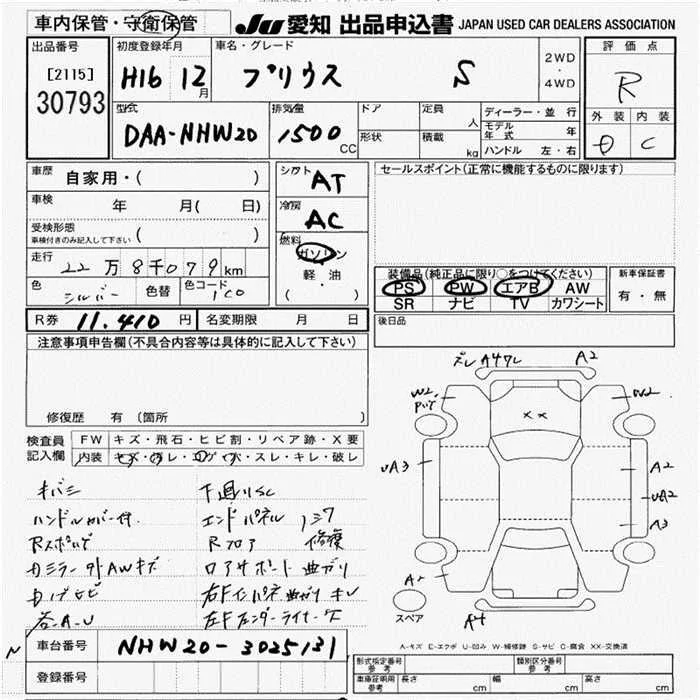 車内保管・守衛保管 JU 愛知 出品申込書 JAPAN USED CAR DEALERS ASSOCIATION
出品番号
[2115]
30793
初度登録年月
H16 12月
車名・グレード
プリウス S
2WD・4WD
評価点
R
型式
DAA-NHW20
排気量
1500 CC
ドア
形状
定員 人
積載 kg
ディーラー・並行
モデル年式 年
ハンドル 左・右
外装 内装
D C
車歴 自家用・( )
車検 年 月( 日)
受検形態
車検付きのみ記入して下さい ( )
走行 22万8千079km
色 シルバー 色替 色コード 1C0
シフト AT
冷房 AC
燃料 ガソリン
軽・油
( )
セールスポイント(正常に機能するものに限ります)
装備品(純正品に限り○をつけてください)
PS PW エアB AW
SR ナビ TV カワシート
新車保証書
有・無
R券 11.410 円 名変期限 月 日
後日品
注意事項申告欄(不具合内容等は具体的に記入して下さい)
修復歴 有 (箇所 )
検査員記入欄
FW キズ・飛石・ヒビ割・リペア跡・X要
内装 キズ・汚レ・コゲ・穴・スレ・キレ・破レ
ハンドルカバー付
Dミラー 外AWキズ
各A-U
下廻リSC
エンドパネル
Rフロア 修復
ロアサポート 曲ガリ
ズレ A47L A2
W2 W2
XX
UA3 A2
UA2
A3
A4
スペア
A-キズ E-エクボ U-凹み W-補修跡 S-サビ C-腐食 XX-交換済
N 車台番号 NHW20-3025131
登録番号
形式指定番号 参考
類別区分番号 参考
車庫証明用 参考 長さ cm 幅 cm 高さ cm